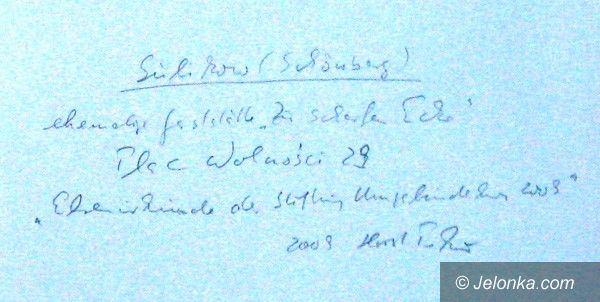 Sulikow (Schönberg)
ehemalige Gaststätte „Zur scharfen Ecke"
Plac Wolności 29
„Ehrenurkunde der Stiftung Umgebindehaus 2009"
2009 Horst
© Jelonka.com